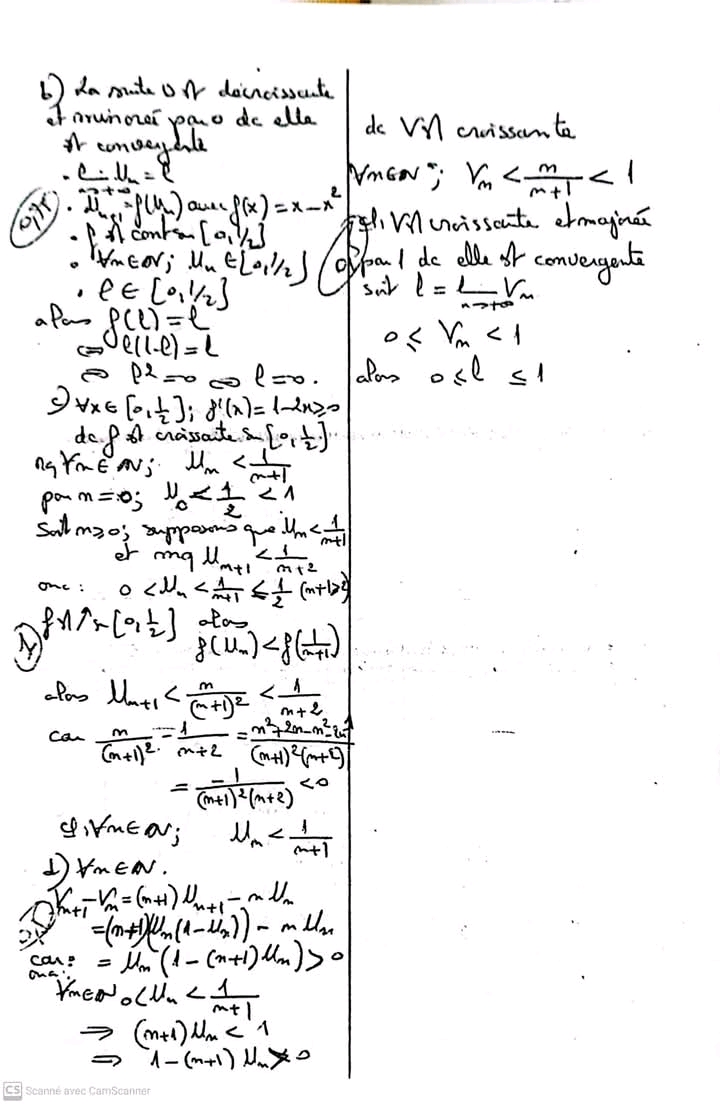 b) La suite U est décroissante
et minorée par 0 dc elle
est convergente
• lim Un = l
n→+∞
0,75
• Un+1 = f(Un) avec f(x) = x - x²
• f est cont sur [0, 1/2]
• ∀n∈N; Un ∈ [0, 1/2]
• l ∈ [0, 1/2]
alors f(l) = l
⇔ l(1-l) = l
⇔ l² = 0 ⇔ l = 0.
c) ∀x ∈ [0, 1/2]; f'(x) = 1-2x ≥ 0
dc f est croissante sur [0, 1/2]
mq ∀n ∈ N; Un < 1/(n+1)
pour n = 0; U0 < 1/2 < 1
Soit n ≥ 0; supposons que Un < 1/(n+1)
et mq Un+1 < 1/(n+2)
on a : 0 < Un < 1/(n+1) ≤ 1/2 (n+1≥2)
f est ↑ sur [0, 1/2] alors
1
f(Un) < f(1/(n+1))
alors Un+1 < n/(n+1)² < 1/(n+2)
car n/(n+1)² - 1/(n+2) = (n²+2n-n²-2n-1)/((n+1)²(n+2))
= -1/((n+1)²(n+2)) < 0
∀n∈N; Un < 1/(n+1)
d) ∀n∈N.
Vn+1 - Vn = (n+1) Un+1 - n Un
= (n+1)(Un(1-Un)) - n Un
car : = Un (1 - (n+1) Un) > 0
on a :
∀n∈N 0 < Un < 1/(n+1)
⇒ (n+1) Un < 1
⇒ 1 - (n+1) Un > 0
dc V est croissante
∀n∈N*; Vn < n/(n+1) < 1
V est croissante et majorée
par 1 dc elle est convergente
soit l = lim Vn
n→+∞
0 ≤ Vn < 1
alors 0 ≤ l ≤ 1
CS Scanné avec CamScanner